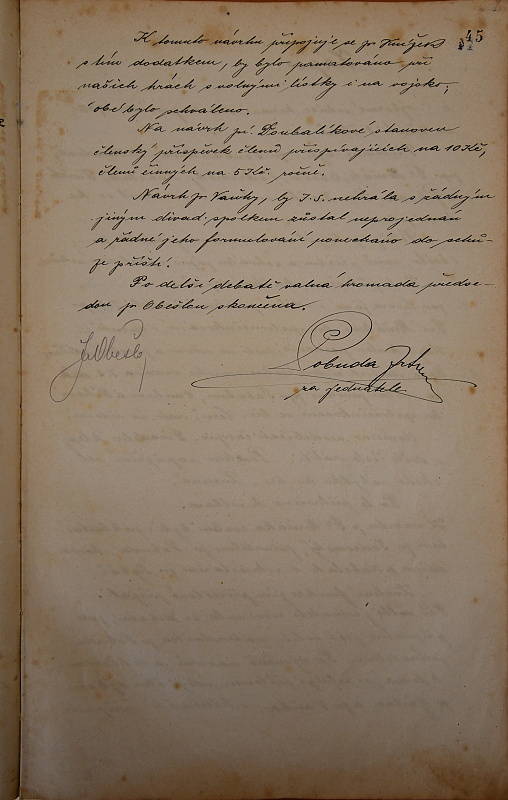 45
K tomuto návrhu připojuje se p. Knížek
s tím dodatkem, by bylo pamatováno při
našich hrách s volnými lístky i na vojsko;
obé bylo schváleno.
Na návrh pí. Doubalíkové stanoven
členský příspěvek členů přispívajících na 10 Kč,
členů činných na 5 Kč. ročně.
Návrh p. Vaňhy, by J. S. nehrála s řádným
jiným divad. spolkem zůstal neprojednán
a řádné jeho formulování ponecháno do schů-
ze příští.
Po delší debatě valná hromada předse-
dou p. Obešlou skončena.
Obešlo
Pobuda
za jednatele